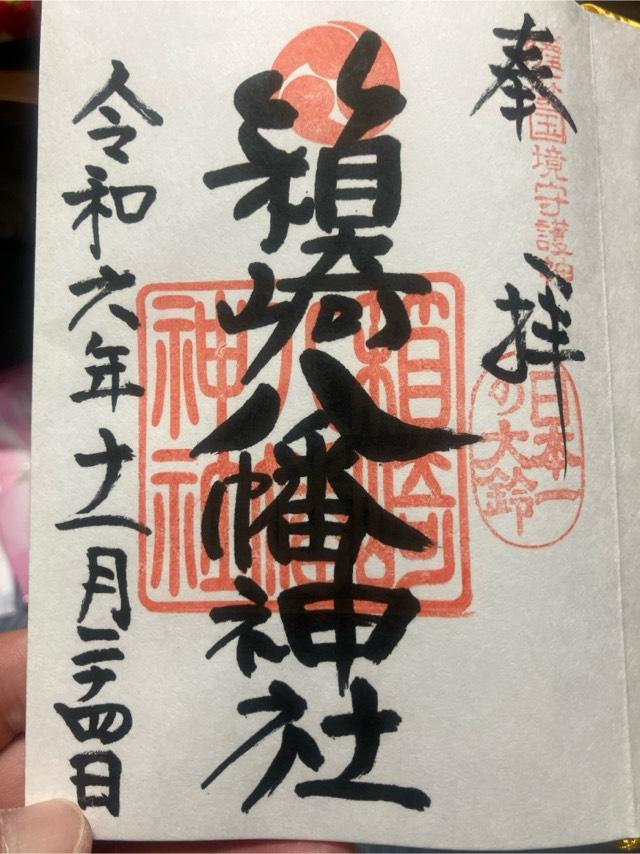 奉拝
薩摩国境守護神
日本一
の大鈴
箱崎八幡神社
箱崎
八幡
神社
令和六年十一月二十四日